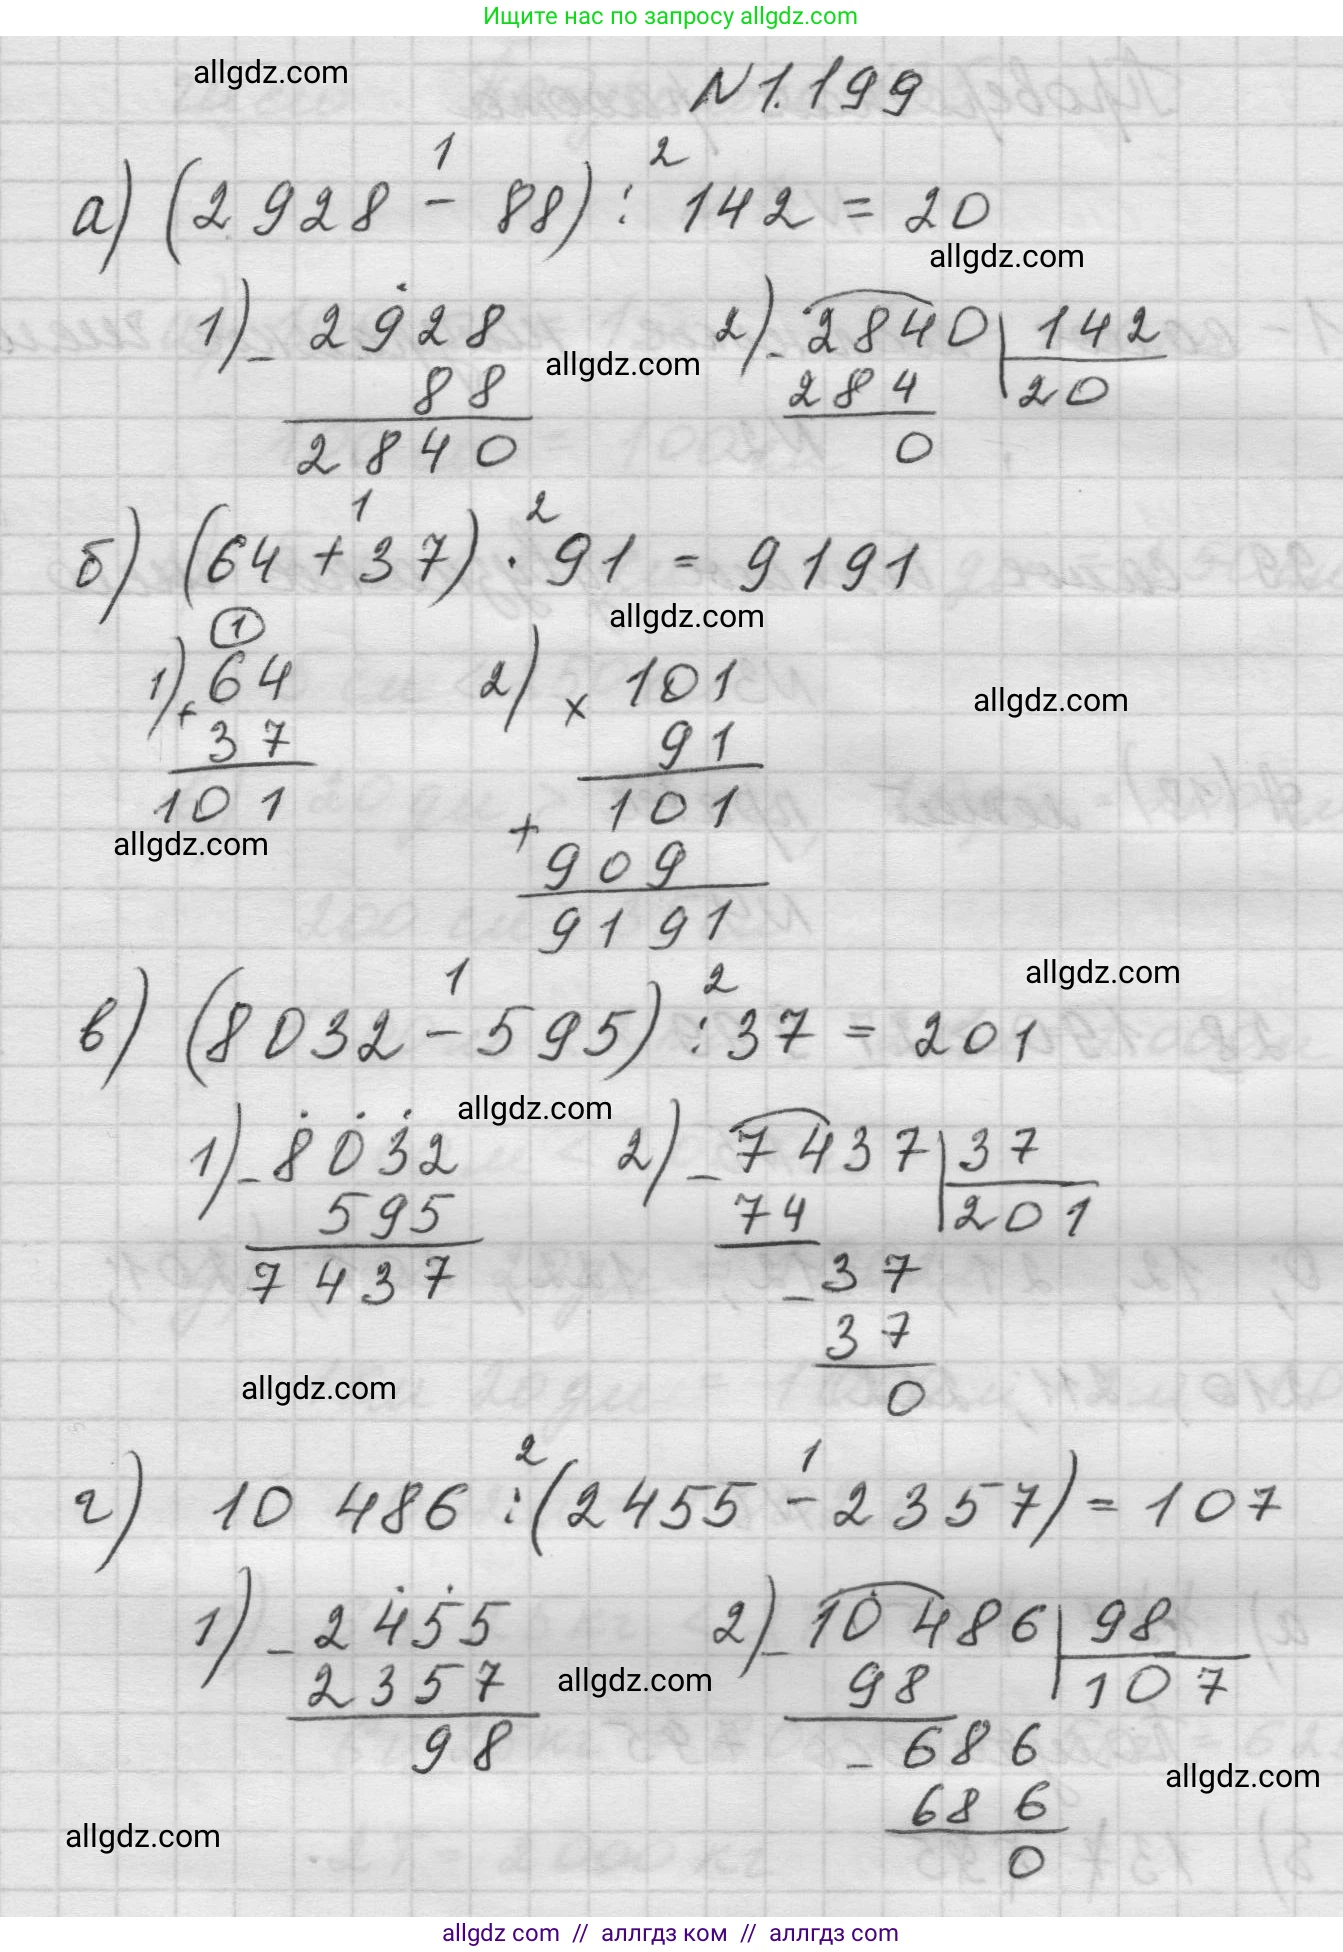 Ищите нас по запросу allgdz.com
allgdz.com
N 1.199
1 2
а) (2928 - 88) : 142 = 20
allgdz.com
1) - 2928 2) - 2840 | 142
allgdz.com
88 284 20
2840 0
1 2
б) (64 + 37) · 91 = 9191
allgdz.com
1
1) + 64 2) × 101
allgdz.com
37 91
101 + 101
allgdz.com
909
9191
allgdz.com
1 2
в) (8032 - 595) : 37 = 201
allgdz.com
1) - 8032 2) - 7437 | 37
595 74 201
7437 - 37
37
allgdz.com
0
2 1
г) 10 486 : (2455 - 2357) = 107
1) - 2455 2) - 10486 | 98
2357 98 107
allgdz.com
98 - 686
allgdz.com
686
allgdz.com
0
allgdz.com // аллгдз ком // аллгдз com